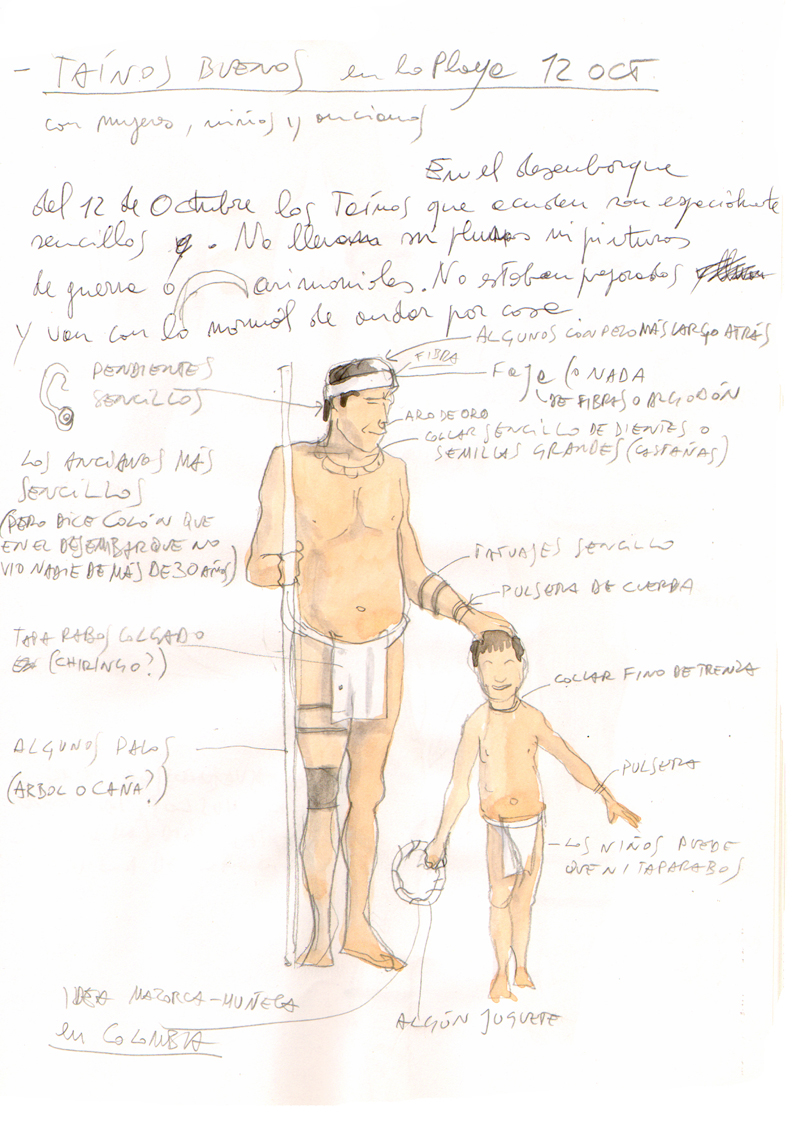 - TAÍNOS BUENOS en la Playa 12 OCT.
con mujeres, niños y ancianos
En el desembarque
del 12 de Octubre los Taínos que acuden son especialmente
sencillos. No llevan ni plumas ni pinturas
de guerra o cerimoniales. No estaban preparados
y van con lo normal de andar por casa.
ALGUNOS CON PELO MÁS LARGO ATRÁS
FIBRA
FAJA (O NADA
DE FIBRAS O ALGODÓN
PENDIENTES
SENCILLOS
ARO DE ORO
COLLAR SENCILLO DE DIENTES O
SEMILLAS GRANDES (CASTAÑAS)
LOS ANCIANOS MÁS
SENCILLOS
(PERO DICE COLÓN QUE
EN EL DESEMBARQUE NO
VIO NADIE DE MÁS DE 30 AÑOS)
TATUAJES SENCILLO
PULSERA DE CUERDA
TAPARABOS COLGADO
(CHIRINGO?)
COLLAR FINO DE TRENZA
ALGUNOS PALOS
(ARBOL O CAÑA?)
PULSERA
- LOS NIÑOS PUEDE
QUE NI TAPARABOS
IDEA MAZORCA-MUÑECA
en COLOMBIA
ALGÚN JUGUETE